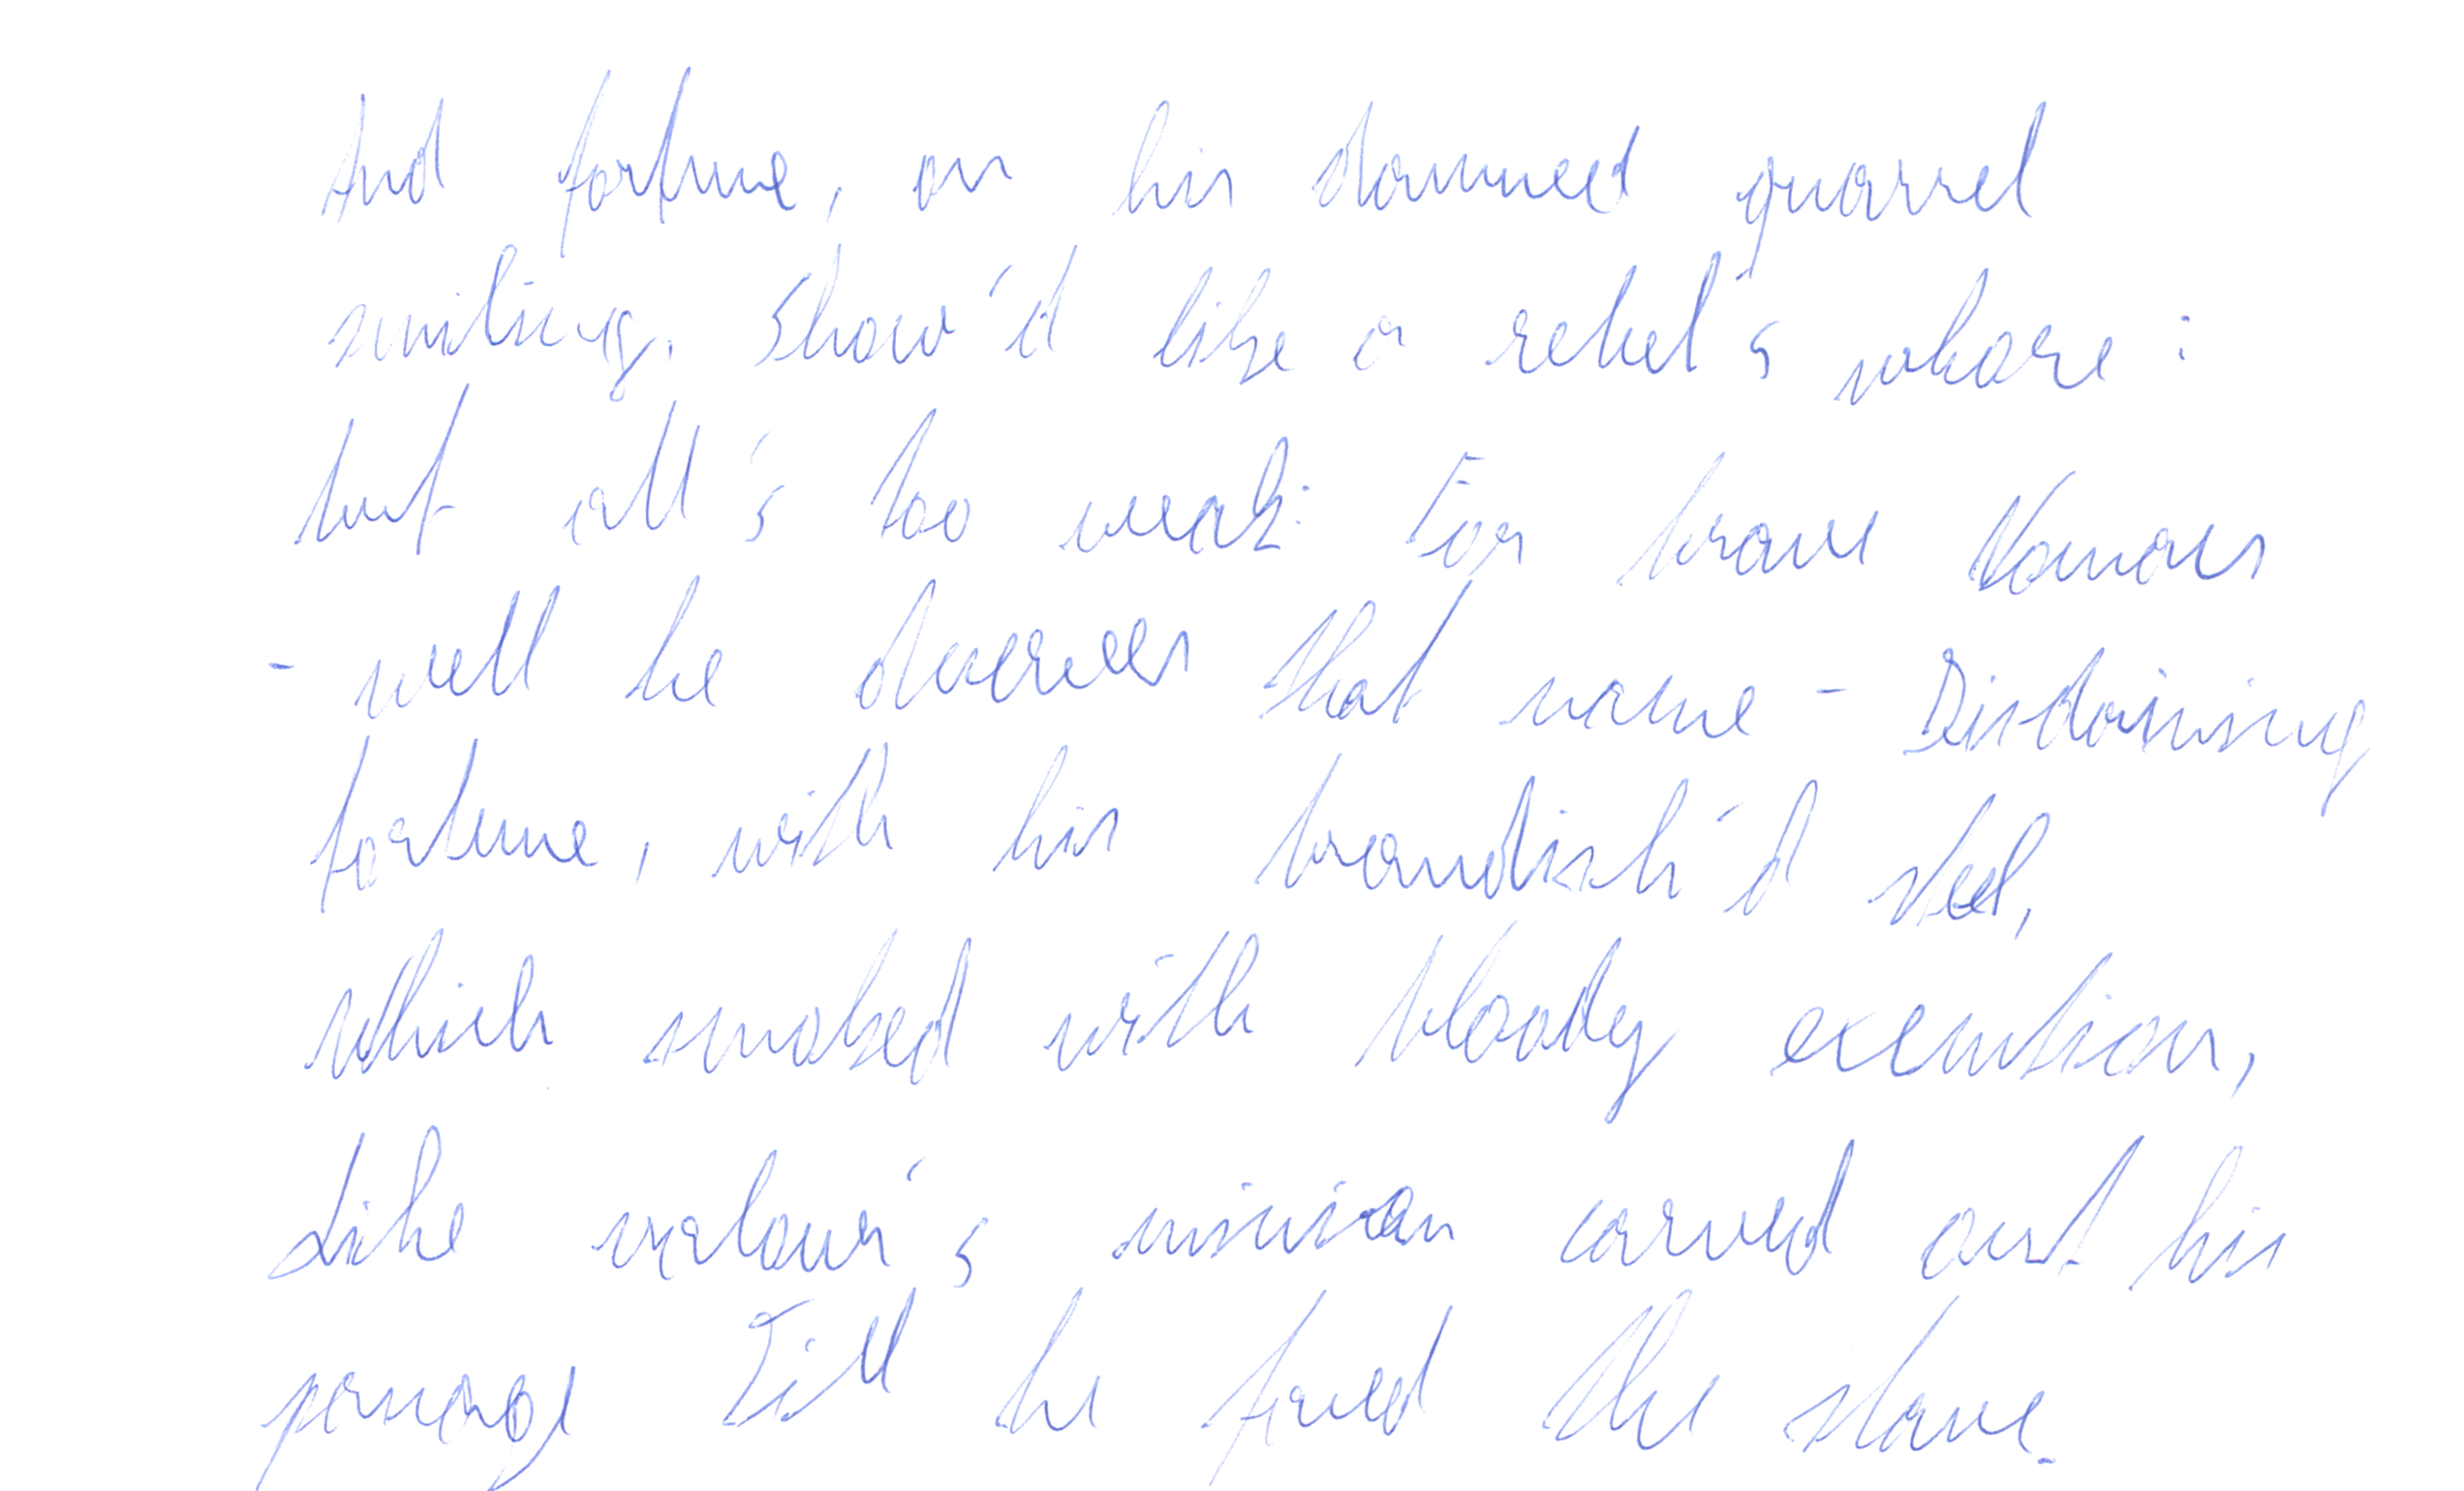 And fortune, on his damned quarrel
smiling, Show'd like a rebel's whore:
but all's too weak: For brave Macbeth
- well he deserves that name - Disdaining
fortune, with his brandish'd steel,
Which smoked with bloody execution,
Like valour's minion carved out his
passage Till he faced the slave.